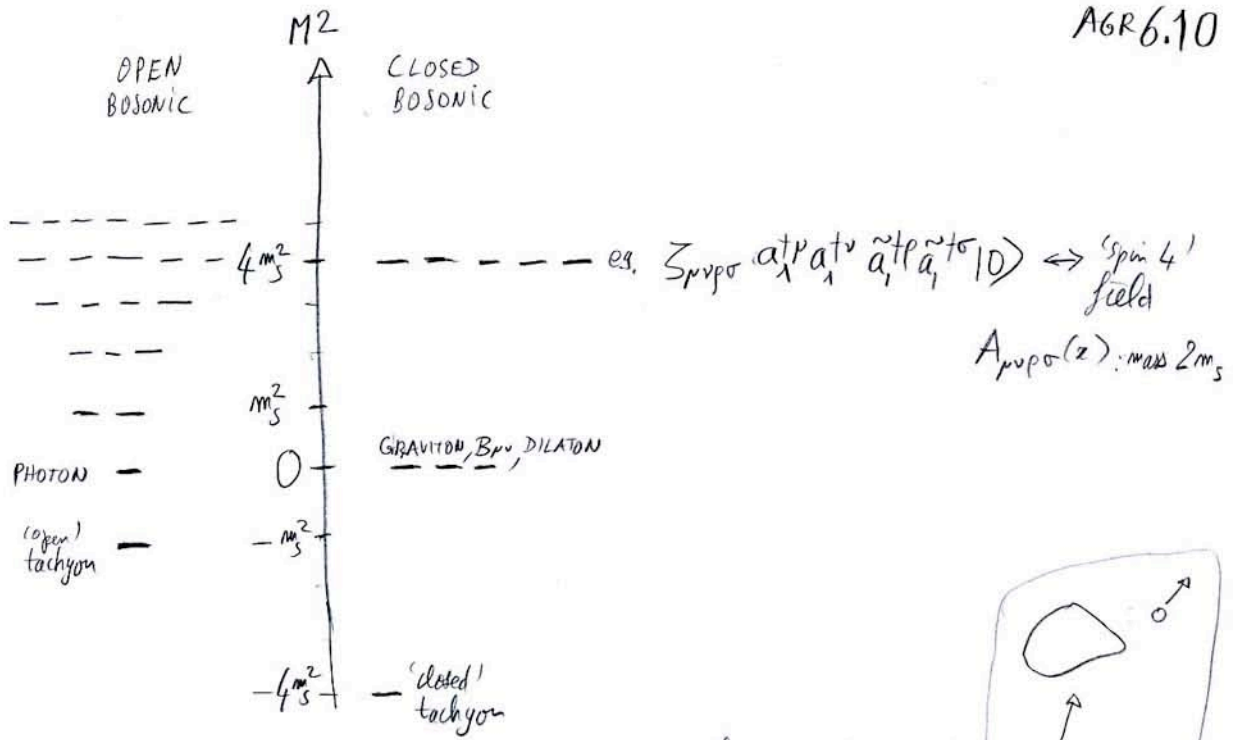 AGR 6.10
M2
OPEN
BOSONIC
CLOSED
BOSONIC
4m_s^2
e.g. ζ_μνρσ a_1^†μ a_1^†ν ã_1^†ρ ã_1^†σ |0⟩ ↔ 'spin 4'
field
A_μνρσ(x): mass 2m_s
m_s^2
GRAVITON, Bμν, DILATON
PHOTON
0
(open)
tachyon
-m_s^2
-4m_s^2
'closed'
tachyon